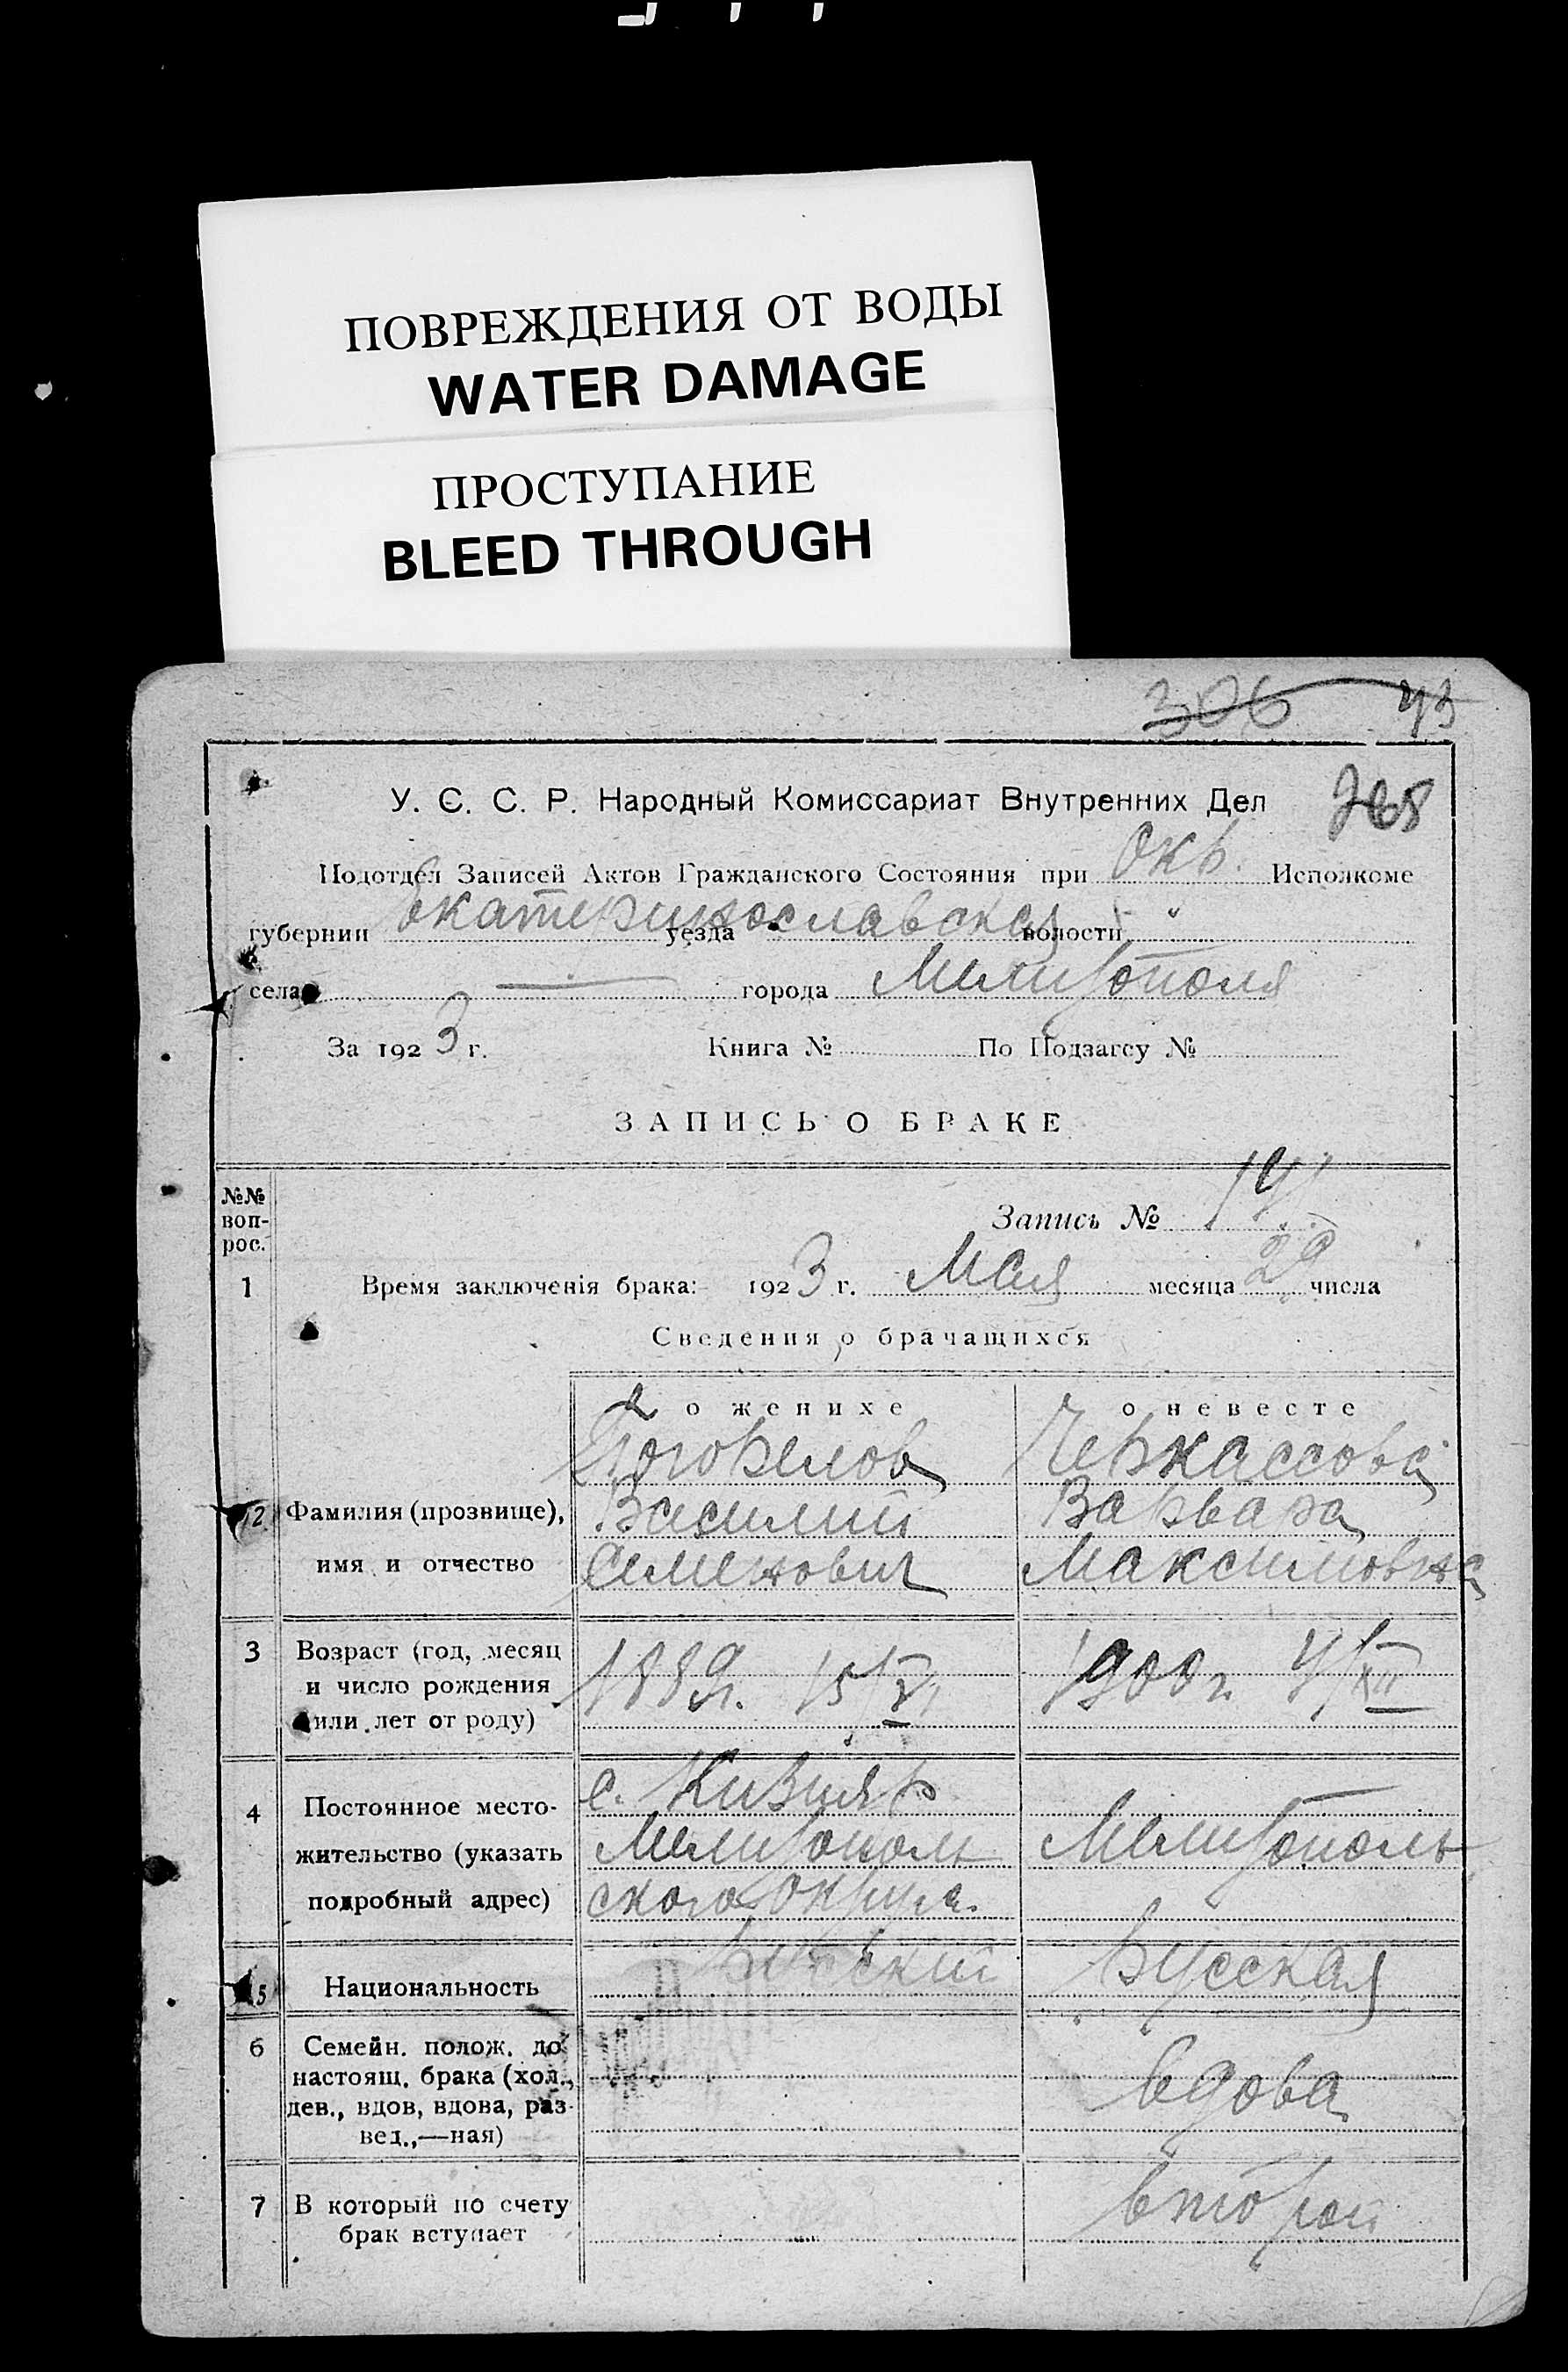 ПОВРЕЖДЕНИЯ ОТ ВОДЫ
WATER DAMAGE
ПРОСТУПАНИЕ
BLEED THROUGH
306 43
У. Є. С. Р. Народный Комиссариат Внутренних Дел
Подотдел Записей Актов Гражданского Состояния при Окр. Исполкоме
губернии Екатеринославская уезда волости "
села — города Мелитополя
За 1923 г. Книга № По Подзагсу №
ЗАПИСЬ О БРАКЕ
№№ воп-
рос.
Запись №
1 Время заключенія брака:- 1923 г. Мая месяца числа
Сведения о брачащихся
о женихе о невесте
Погорелов Черкассова
2 Фамилия (прозвище), Василий Варвара
имя и отчество Семенович Максимовна
3 Возраст (год, месяц
и число рождения 1889г. 15/XI 1900г. 4/XII
или лет от роду)
с. Кизияр
4 Постоянное место-
жительство (указать Мелитополь Мелитополь
подробный адрес) ского округа.
5 Национальность Русский Русская
6 Семейн. полож. до
настоящ. брака (хол.,
дев., вдов, вдова, раз- вдова
вед.,—ная)
7 В который по счету второй
брак вступает